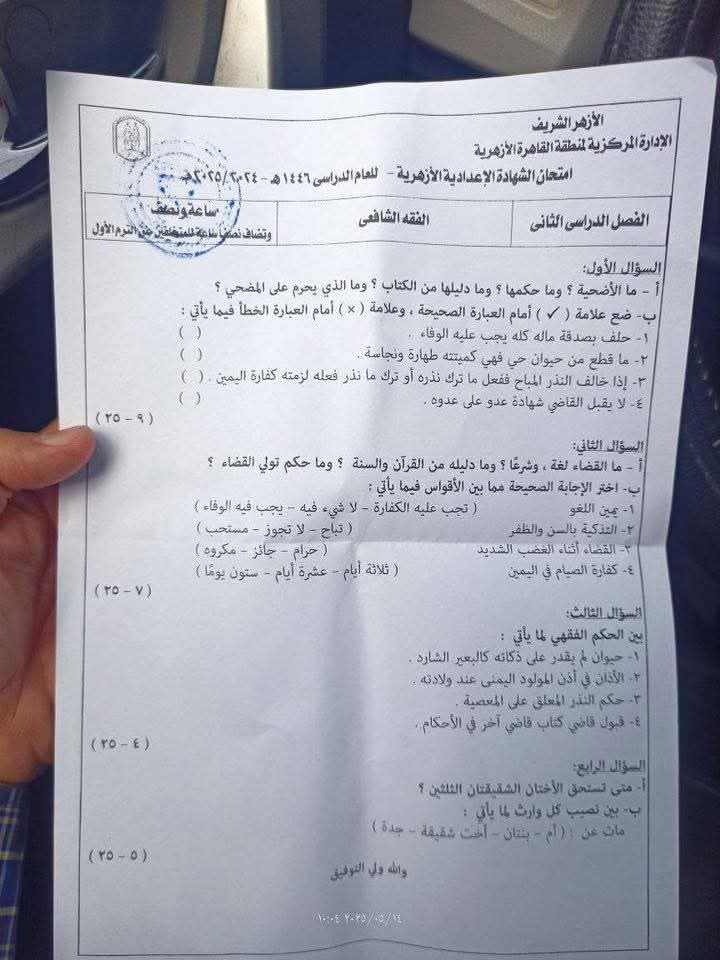 الأزهر الشريف
الإدارة المركزية لمنطقة القاهرة الأزهرية
امتحان الشهادة الإعدادية الأزهرية - للعام الدراسى ١٤٤٦هـ - ٢٠٢٤/٢٠٢٥م
الفصل الدراسى الثانى
الفقه الشافعى
ساعة ونصف
وتضاف نصف ساعة للمتخلفين من الترم الأول
السؤال الأول:
أ – ما الأضحية ؟ وما حكمها ؟ وما دليلها من الكتاب ؟ وما الذي يحرم على المضحي ؟
ب- ضع علامة ( ✓ ) أمام العبارة الصحيحة ، وعلامة ( × ) أمام العبارة الخطأ فيما يأتي :
١- حلف بصدقة ماله كله يجب عليه الوفاء . ( )
٢- ما قطع من حيوان حي فهي كميتته طهارة ونجاسة . ( )
٣- إذا خالف النذر المباح ففعل ما ترك نذره أو ترك ما نذر فعله لزمته كفارة اليمين . ( )
٤- لا يقبل القاضي شهادة عدو على عدوه . ( )
( ٩ – ٢٥ )
السؤال الثاني:
أ – ما القضاء لغة ، وشرعًا ؟ وما دليله من القرآن والسنة ؟ وما حكم تولي القضاء ؟
ب- اختر الإجابة الصحيحة مما بين الأقواس فيما يأتي :
١- يمين اللغو ( تجب عليه الكفارة – لا شيء فيه – يجب فيه الوفاء )
٢- التذكية بالسن والظفر ( تباح – لا تجوز – مستحب )
٣- القضاء أثناء الغضب الشديد ( حرام – جائز – مكروه )
٤- كفارة الصيام في اليمين ( ثلاثة أيام – عشرة أيام – ستون يومًا )
( ٧ – ٢٥ )
السؤال الثالث:
بين الحكم الفقهي لما يأتي :
١- حيوان لم يقدر على ذكاته كالبعير الشارد .
٢- الأذان في أذن المولود اليمنى عند ولادته .
٣- حكم النذر المعلق على المعصية .
٤- قبول قاضي كتاب قاضي آخر في الأحكام .
( ٤ – ٢٥ )
السؤال الرابع:
أ- متى تستحق الأختان الشقيقتان الثلثين ؟
ب- بين نصيب كل وارث لما يأتي :
مات عن : ( أم – بنتان – أخت شقيقة – جدة )
( ٥ – ٢٥ )
والله ولي التوفيق
٢٠٢٥/٠٥/١٤ ١٠:٠٤